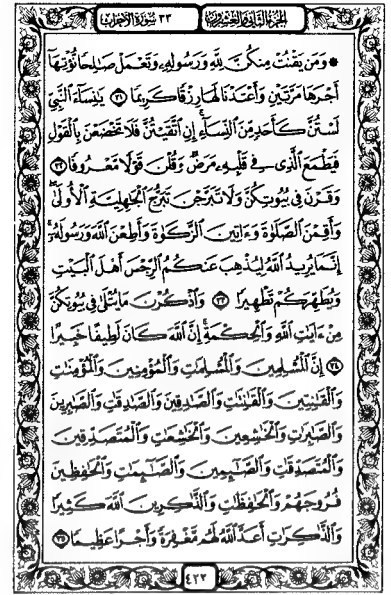 الجزء الثاني والعشرون ٣٣ سورة الأحزاب
۞ وَمَن يَقْنُتْ مِنكُنَّ لِلَّهِ وَرَسُولِهِۦ وَتَعْمَلْ صَٰلِحًا نُّؤْتِهَآ
أَجْرَهَا مَرَّتَيْنِ وَأَعْتَدْنَا لَهَا رِزْقًا كَرِيمًا ٣١ يَٰنِسَآءَ ٱلنَّبِىِّ
لَسْتُنَّ كَأَحَدٍ مِّنَ ٱلنِّسَآءِ ۚ إِنِ ٱتَّقَيْتُنَّ فَلَا تَخْضَعْنَ بِٱلْقَوْلِ
فَيَطْمَعَ ٱلَّذِى فِى قَلْبِهِۦ مَرَضٌ وَقُلْنَ قَوْلًا مَّعْرُوفًا ٣٢
وَقَرْنَ فِى بُيُوتِكُنَّ وَلَا تَبَرَّجْنَ تَبَرُّجَ ٱلْجَٰهِلِيَّةِ ٱلْأُولَىٰ ۖ
وَأَقِمْنَ ٱلصَّلَوٰةَ وَءَاتِينَ ٱلزَّكَوٰةَ وَأَطِعْنَ ٱللَّهَ وَرَسُولَهُۥٓ ۚ
إِنَّمَا يُرِيدُ ٱللَّهُ لِيُذْهِبَ عَنكُمُ ٱلرِّجْسَ أَهْلَ ٱلْبَيْتِ
وَيُطَهِّرَكُمْ تَطْهِيرًا ٣٣ وَٱذْكُرْنَ مَا يُتْلَىٰ فِى بُيُوتِكُنَّ
مِنْ ءَايَٰتِ ٱللَّهِ وَٱلْحِكْمَةِ ۚ إِنَّ ٱللَّهَ كَانَ لَطِيفًا خَبِيرًا
٣٤ إِنَّ ٱلْمُسْلِمِينَ وَٱلْمُسْلِمَٰتِ وَٱلْمُؤْمِنِينَ وَٱلْمُؤْمِنَٰتِ
وَٱلْقَٰنِتِينَ وَٱلْقَٰنِتَٰتِ وَٱلصَّٰدِقِينَ وَٱلصَّٰدِقَٰتِ وَٱلصَّٰبِرِينَ
وَٱلصَّٰبِرَٰتِ وَٱلْخَٰشِعِينَ وَٱلْخَٰشِعَٰتِ وَٱلْمُتَصَدِّقِينَ
وَٱلْمُتَصَدِّقَٰتِ وَٱلصَّٰٓئِمِينَ وَٱلصَّٰٓئِمَٰتِ وَٱلْحَٰفِظِينَ
فُرُوجَهُمْ وَٱلْحَٰفِظَٰتِ وَٱلذَّٰكِرِينَ ٱللَّهَ كَثِيرًا
وَٱلذَّٰكِرَٰتِ أَعَدَّ ٱللَّهُ لَهُم مَّغْفِرَةً وَأَجْرًا عَظِيمًا ٣٥
٤٢٢